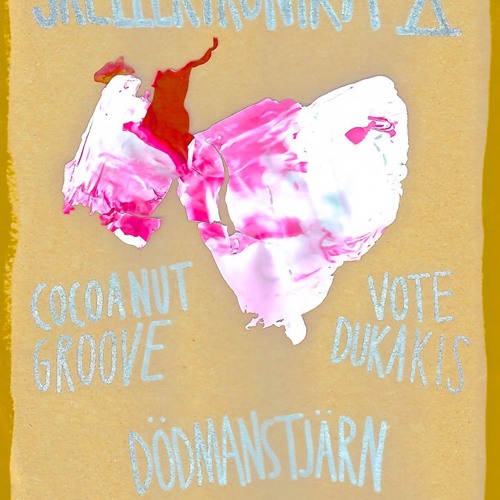 COCOANUT
GROOVE
VOTE
DUKAKIS
DÖDMANSTJÄRN